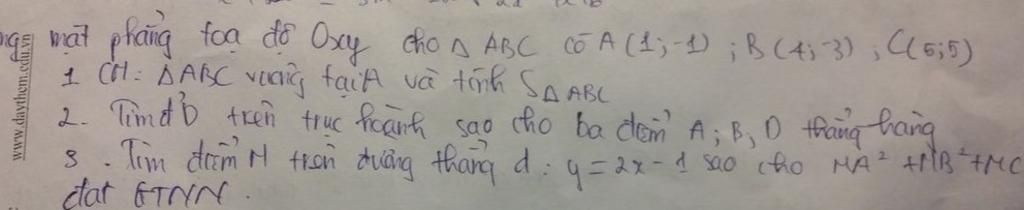 ng mặt phẳng toạ độ Oxy cho Δ ABC có A (1;-1) ; B (4;-3) ; C(5;5)
1 CM: ΔABC vuông tại A và tính S Δ ABC
2. Tìm đ' D trên trục hoành sao cho ba điểm A; B, D thẳng hàng
3. Tìm điểm M trên đường thẳng d: y = 2x - 1 sao cho MA² + MB² + MC
đạt GTNN.
www.daythem.edu.vn